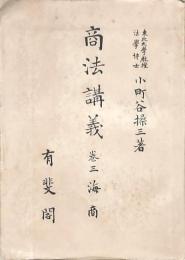 東北大學教授
法學博士
小町谷操三著
商法講義 卷三 海商
有斐閣